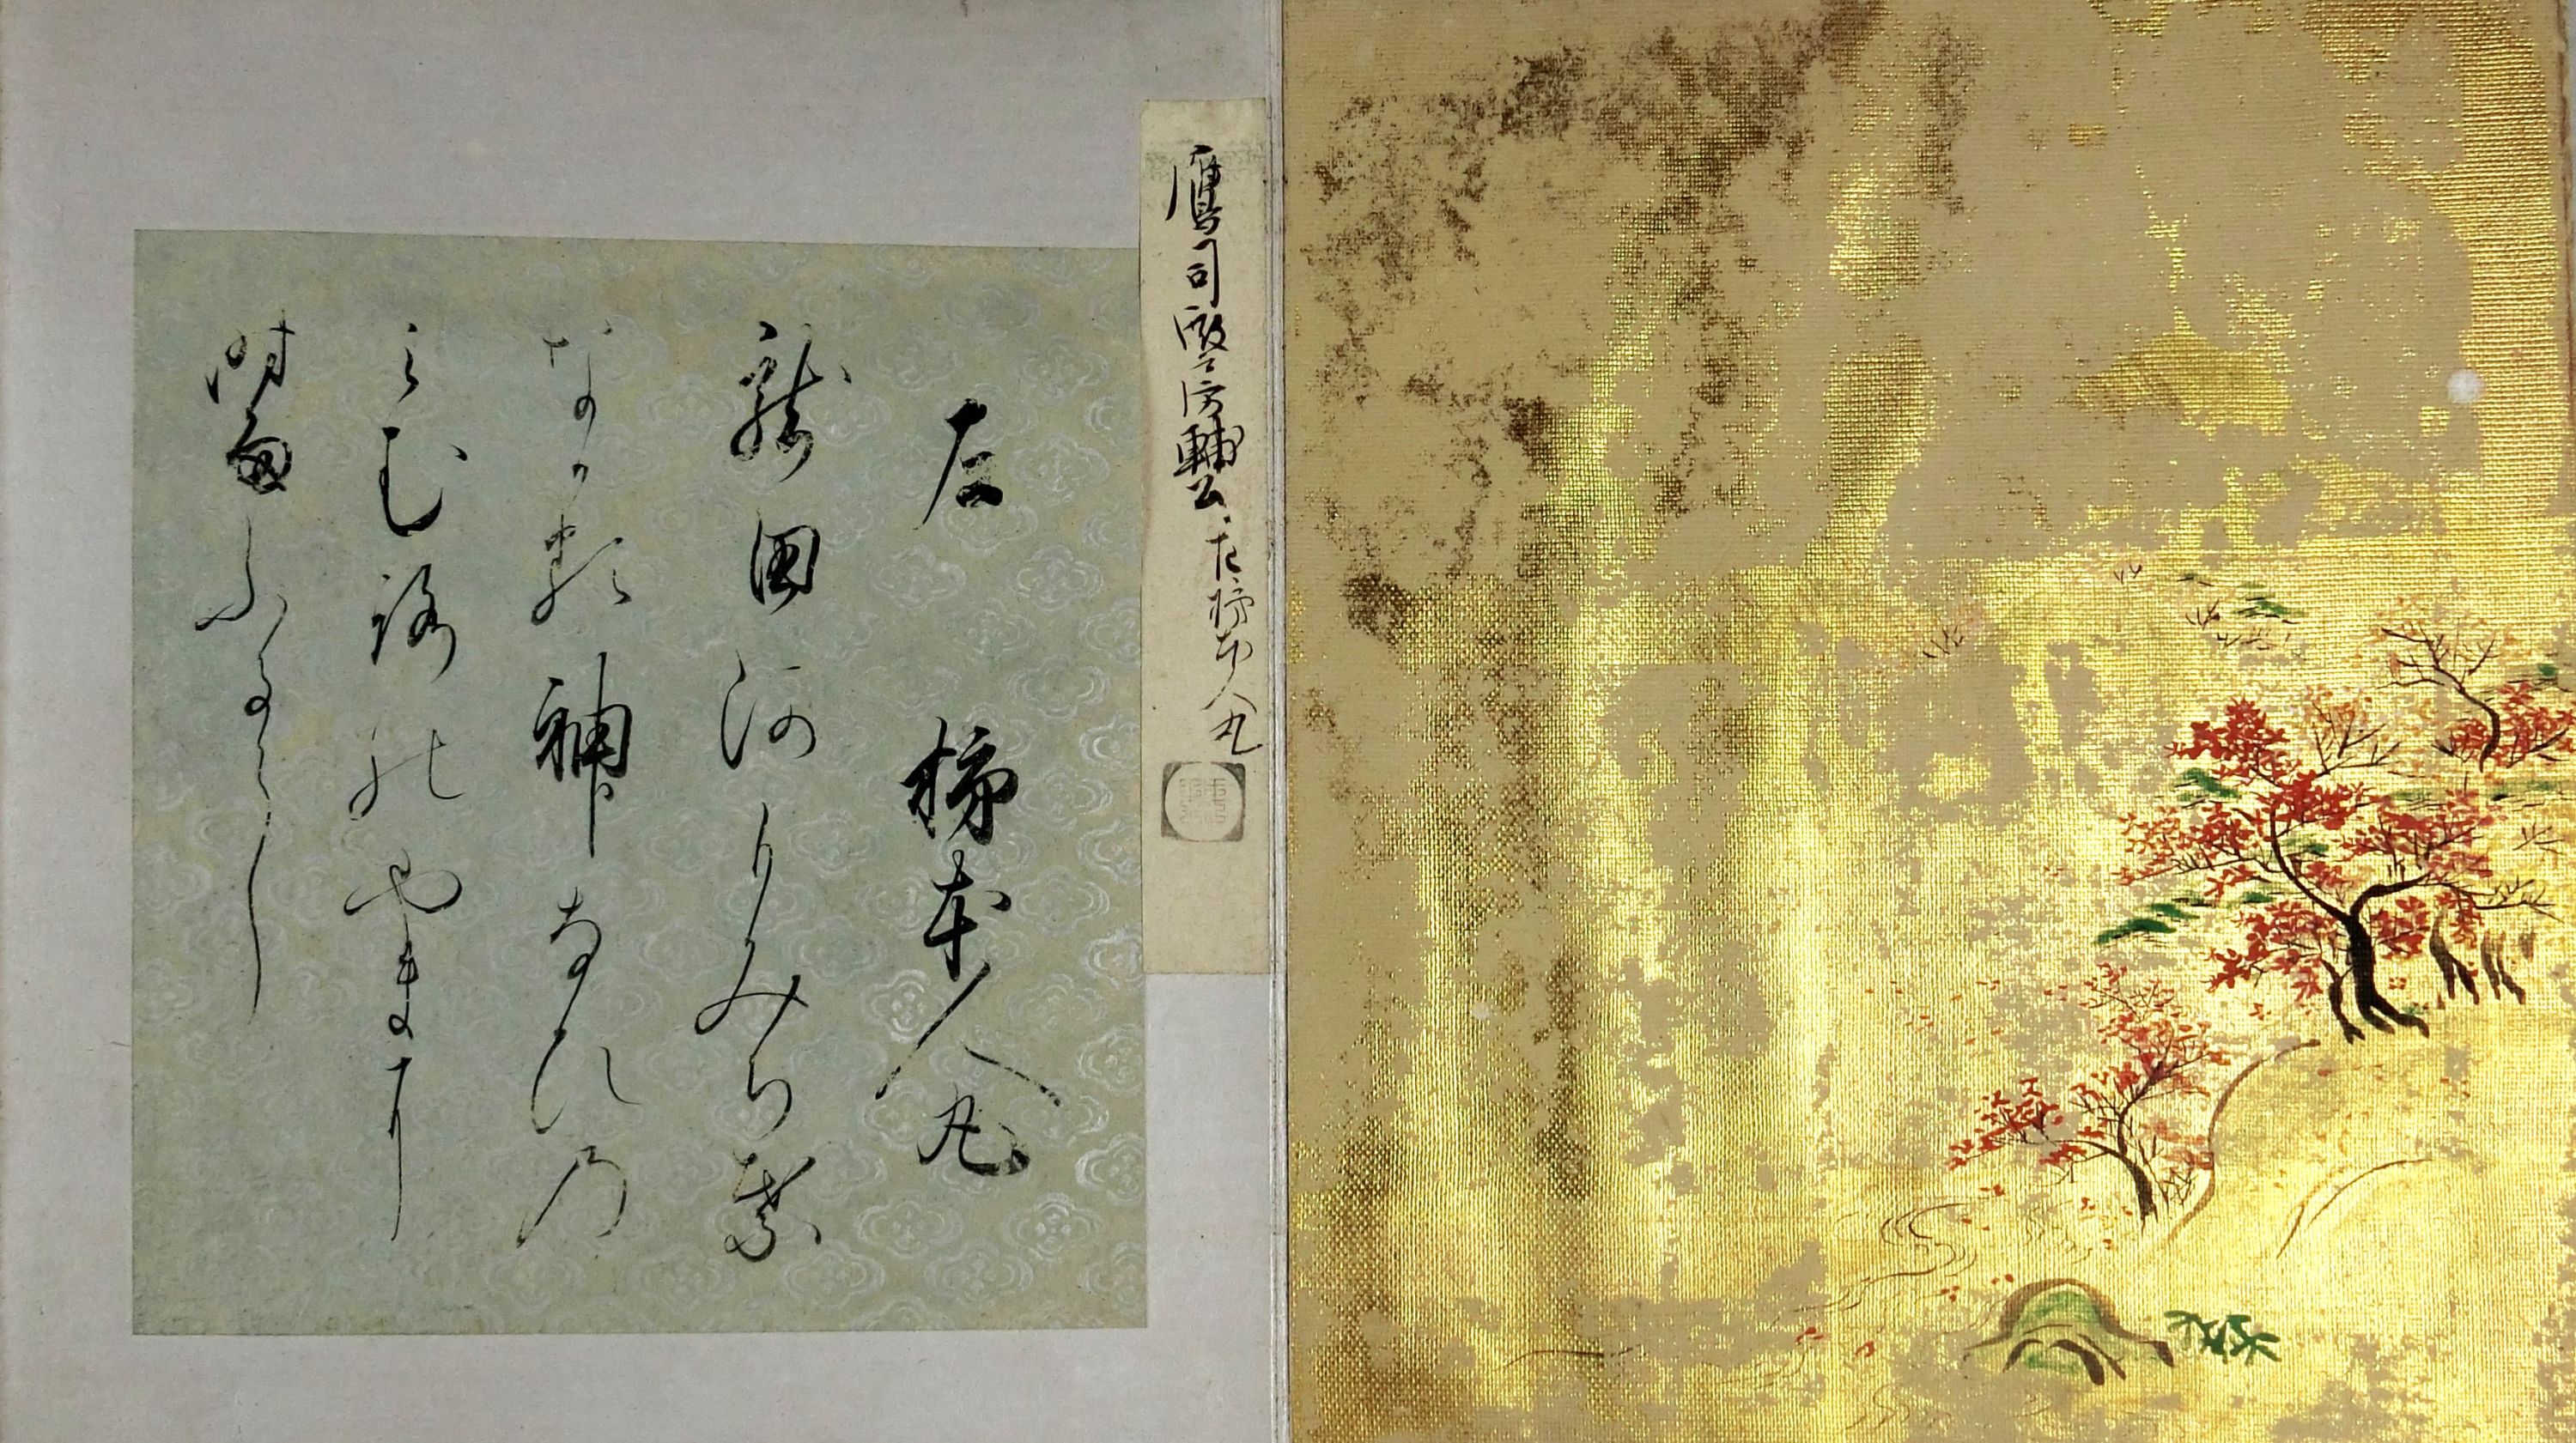 鷹司殿房輔公 左柿本人丸
左 柿本人丸
龍田河もみち葉
なかる神なひの
みむろのやまに
時雨ふるらし